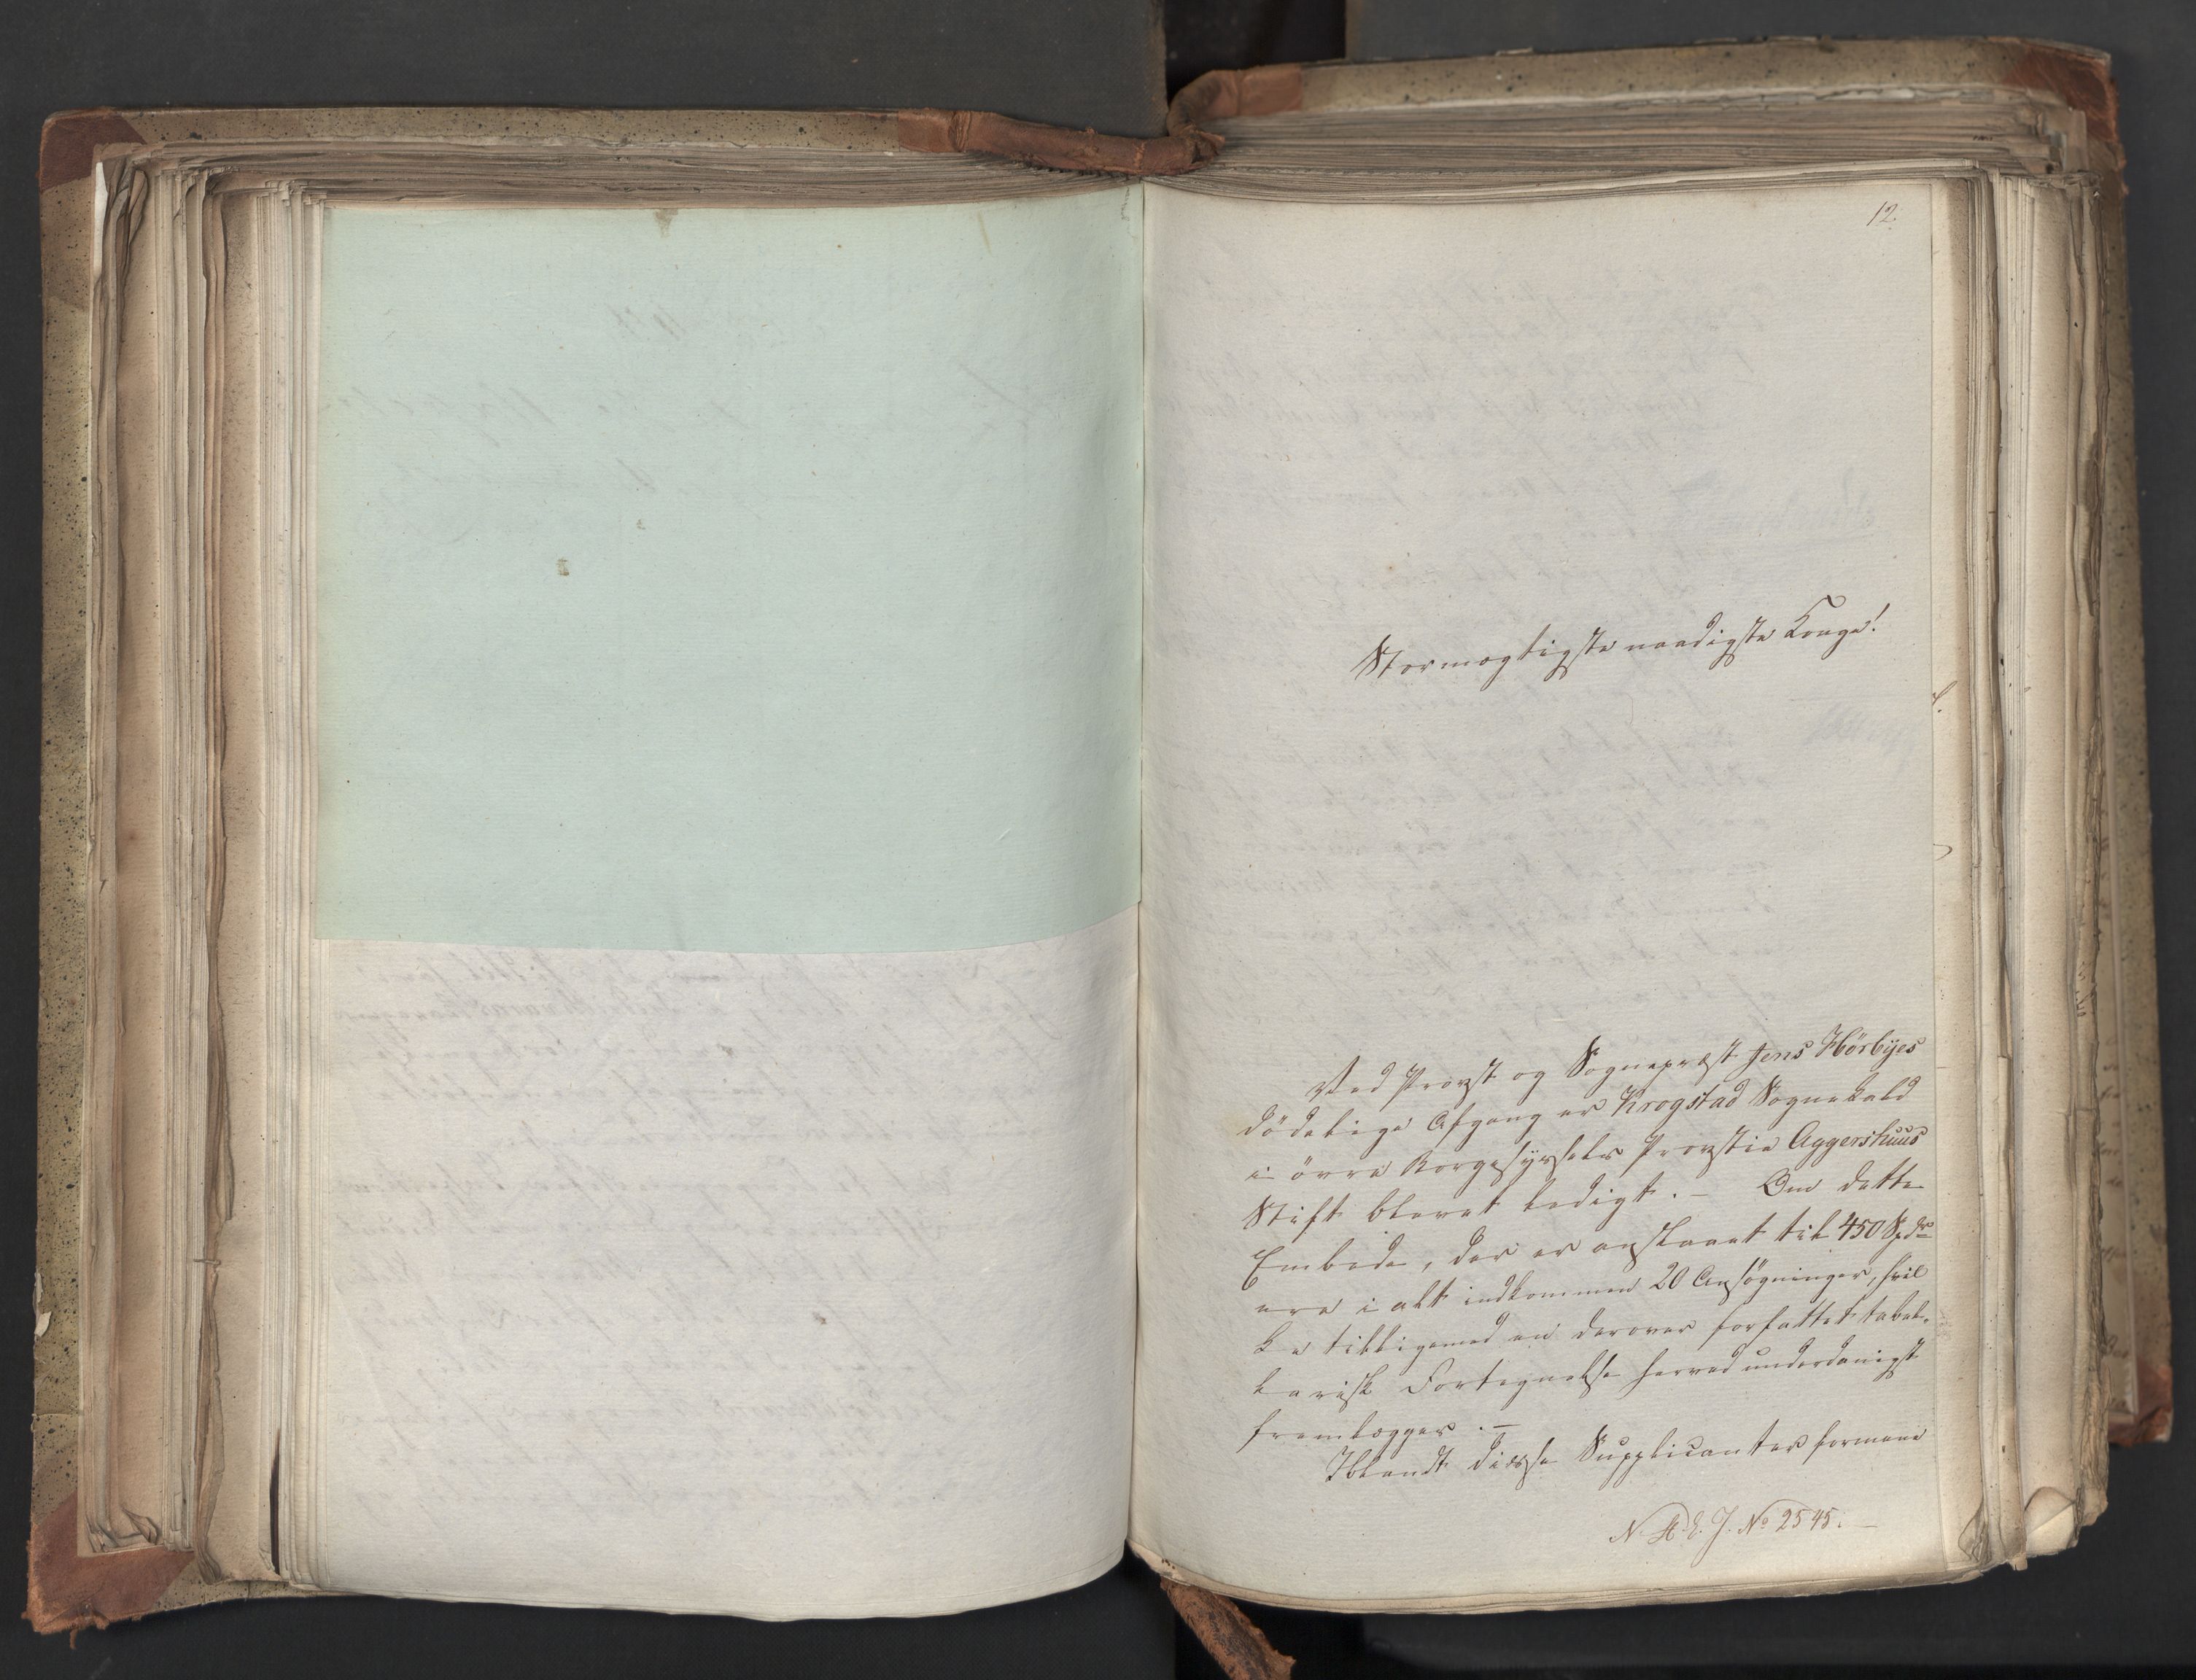 12.
Stormægtigste naadigste Konge!
Ved Provst og Sognepræst Jens Hörbÿes
dödelige Afgang er Krogstad Sognekald
i övre Borgesÿssels Provstie Aggershuus
Stift blevet ledigt. – Om dette
Embede, der er anslaaet til 450 Spdr
ere i alt indkommen 20 Ansögninger, hvil
ke tilligemed en derover forfattet tabel-
larisk Fortegnelse herved underdanigst
fremlægges. –
Iblandt disse Supplicanter formene
N. A. E. J. No 2545. –